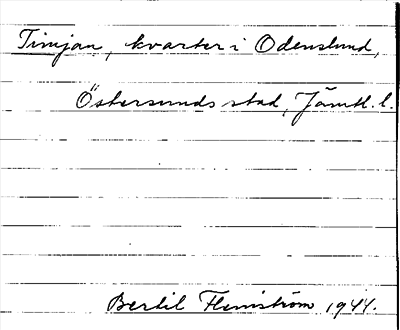 Timjan, kvarter i Odenslund,
Östersunds stad, Jämtl. l.
Bertil Flemström 1944.